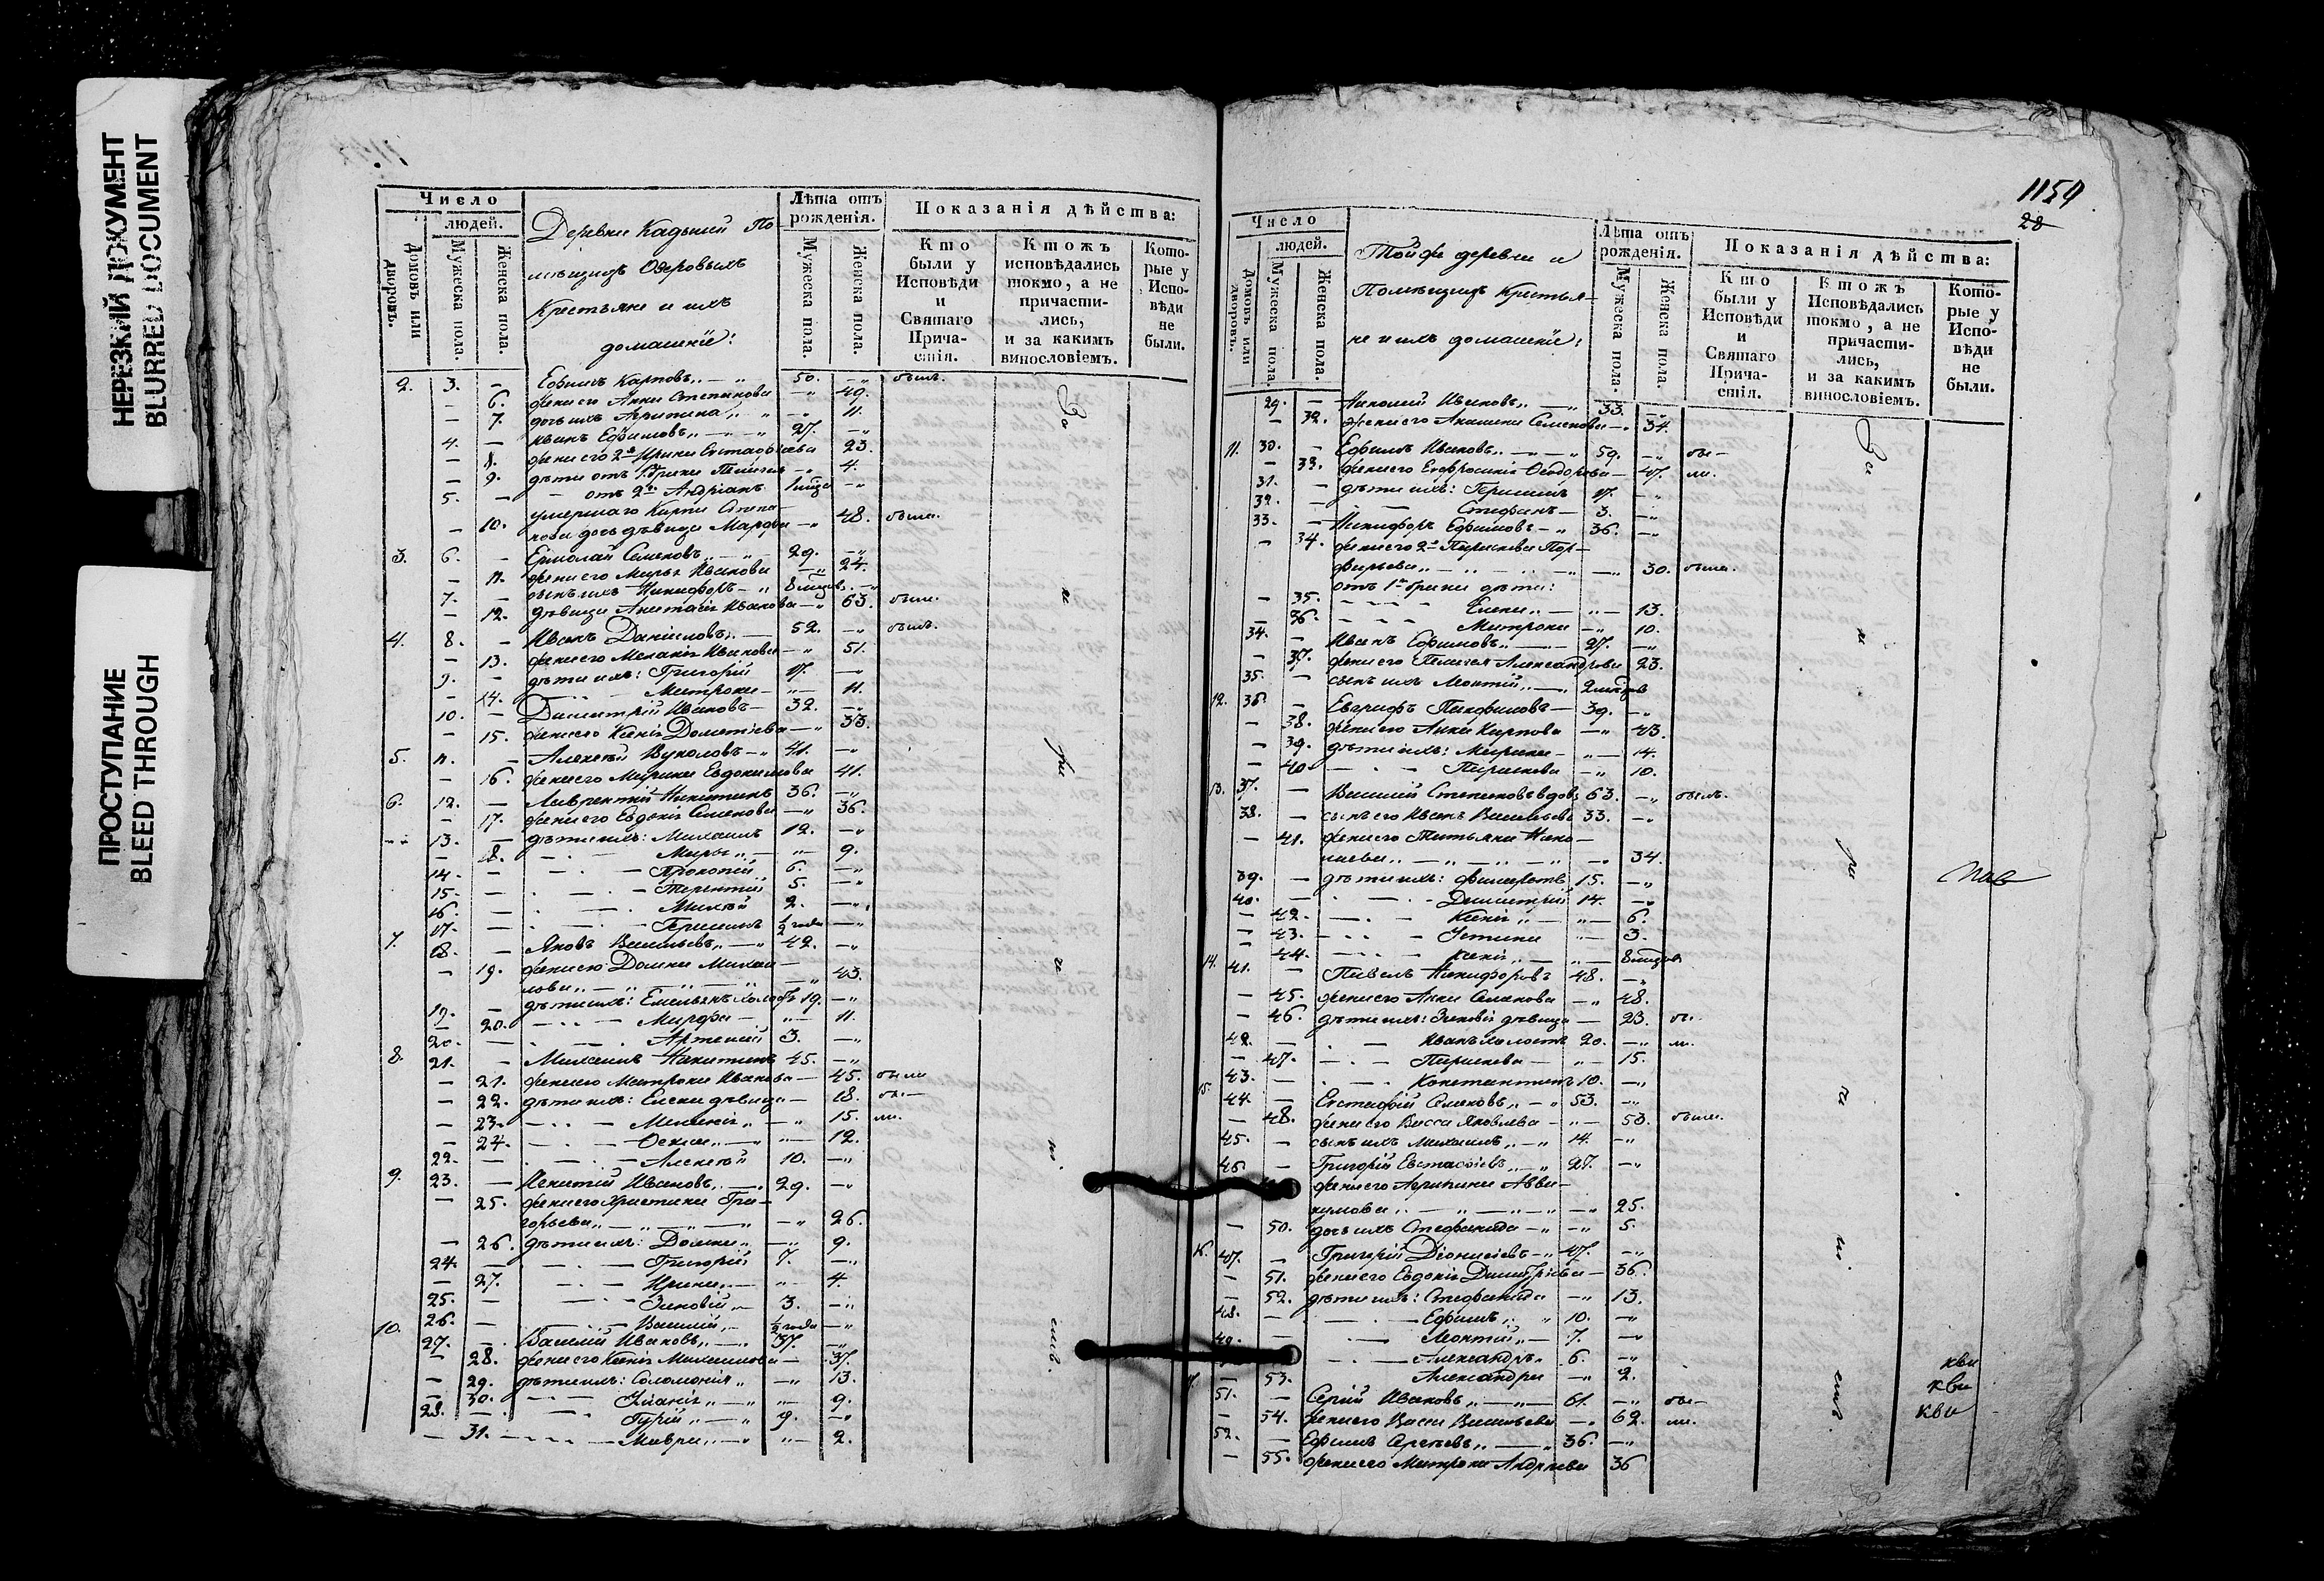 НЕРЕЗКИЙ ДОКУМЕНТ
BLURRED DOCUMENT
ПРОСТУПАНИЕ
BLEED THROUGH
Число
людей.
Домовъ или дворовъ.
Мужеска пола.
Женска пола.
Деревни Кадыкий По-
мѣщицъ Озеровыхъ
Крестьяне и ихъ
домашніе:
Лѣта отъ рожденія.
Мужеска пола.
Женска пола.
Показанія дѣйства:
Кто были у Исповѣди и Святаго Прича-стія.
Ктожъ исповѣдались токмо, а не причасти-лись, и за какимъ винословіемъ.
Кото-рые у Испо-вѣди не были.
2. 3. — Ефимъ Карповъ 50. были.
— 6. жена его Анна Степанова 49.
— 7. дочь ихъ Агрипина 11.
4. — Иванъ Ефимовъ 27.
— 8. жена его 2я Ирина Евстафіева 23.
— 9. дѣти отъ 1. брака Пелагея 4.
5. — отъ 2го Андріанъ 1 мѣся
умершаго Карпа Степа-
— 10. нова дочь дѣвица Марфа 48. была.
3. 6. — Ермолай Семеновъ 29.
— 11. жена его Марья Иванова 24.
7. — сынъ ихъ Никифоръ 8 мѣсяц.
— 12. дѣвица Анастасія Иванова 63. была.
4. 8. — Иванъ Даниловъ 52. былъ.
— 13. жена его Меланія Иванова 51.
9. — дѣти ихъ: Григорій 17.
— 14. Матрона 11.
10. — Димитрій Ивановъ 32.
— 15. жена его Ксенія Дометіева 33.
5. 11. — Алексѣй Вуколовъ 41.
— 16. жена его Марина Евдокимова 41.
6. 12. — Лаврентій Никитинъ 36.
— 17. жена его Евдокія Семенова 36.
13. — дѣти ихъ: Михаилъ 12.
— 18. Марья 9.
14. — Прокопій 6.
15. — Терентій 5.
16. — Михѣй 2.
17. — Герасимъ ½ года
7. 18. — Яковъ Васильевъ 42.
— 19. жена его Домна Михаи-
лова 43.
19. — дѣти ихъ: Емельянъ холостъ 19.
— 20. Марфа 11.
20. — Артемій 3.
8. 21. — Михаилъ Никитинъ 45.
— 21. жена его Матрона Иванова 45. были
— 22. дѣти ихъ: Елена дѣвица 18. бы-
— 23. Меланія 15. ли.
— 24. Оекла 12.
22. — Алексѣй 10.
9. 23. — Игнатій Ивановъ 29.
— 25. жена его Христина Гри-
горьева 26.
— 26. дѣти ихъ: Домна 9.
24. — Григорій 7.
— 27. Ирина 4.
25. — Зиновій 3.
26. — Василій ½ года
10. 27. — Василій Ивановъ 37.
— 28. жена его Ксенія Михаилова 37.
— 29. дѣти ихъ: Соломонія 13.
— 30. Уліанія 9.
28. — Гурій 9.
— 31. Мавра 2.
За
1154
28
Число
людей.
Домовъ или дворовъ.
Мужеска пола.
Женска пола.
Той же деревни и
Помѣщицъ Крестья-
не и ихъ домашніе:
Лѣта отъ рожденія.
Мужеска пола.
Женска пола.
Показанія дѣйства:
Кто были у Исповѣди и Святаго Прича-стія.
Ктожъ Исповѣдались токмо, а не причасти-лись, и за какимъ винословіемъ.
Кото-рые у Испо-вѣди не были.
29. — Николай Ивановъ 33.
— 32. жена его Акилина Семенова 34.
11. 30. — Ефимъ Ивановъ 59. бы-
— 33. жена его Евфросинія Ѳеодорова 47. ли.
31. — дѣти ихъ: Герасимъ 17.
32. — Стефанъ 3.
33. — Никифоръ Ефимовъ 36.
— 34. жена его 2я Параскева Пор-
фирьева 30. была.
отъ 1го брака дѣти:
— 35. Елена 13.
— 36. Матрона 10.
34. — Иванъ Ефимовъ 27.
— 37. жена его Пелагея Александрова 23.
35. — сынъ ихъ Леонтій 2 мѣсяцовъ
12. 36. — Евграфъ Панфиловъ 39.
— 38. жена его Анна Карпова 43.
— 39. дѣти ихъ: Марина 14.
— 40. Параскева 10.
13. 37. — Василій Степановъ вдовъ 63. былъ.
38. — сынъ его Иванъ Васильевъ 33.
— 41. жена его Татьяна Нико-
лаева 34.
39. — дѣти ихъ: Филиратъ 15.
40. — Димитрій 14.
— 42. Ксенія 6.
— 43. Устина 3.
— 44. Ксенія 8 мѣсяцов
14. 41. — Павелъ Никифоровъ 48.
— 45. жена его Анна Семенова 48.
— 46. дѣти ихъ: Зиновія дѣвица 23. бы-
42. — Иванъ холостъ 20. ли.
— 47. Параскева 15.
43. — Константинъ 10.
15. 44. — Евстафій Семеновъ 53.
— 48. жена его Васса Яковлева 53. была.
45. — сынъ ихъ Михаилъ 14.
46. — Григорій Евстафіевъ 27.
жена его Агрипина Авва-
кумова 25.
— 50. дочь ихъ Стефанида 5.
16. 47. — Григорій Діонисіевъ 47.
— 51. жена его Евдокія Димитріева 36.
— 52. дѣти ихъ: Стефанида 13.
48. — Ефимъ 10.
49. — Леонтій 7.
Александръ 6.
— 53. Александра 2.
51. — Сергій Ивановъ 61. бы-
— 54. жена его Васса Васильева 62. ли.
52. — Ефимъ Сергѣевъ 36.
— 55. жена его Матрона Андреева 36
За